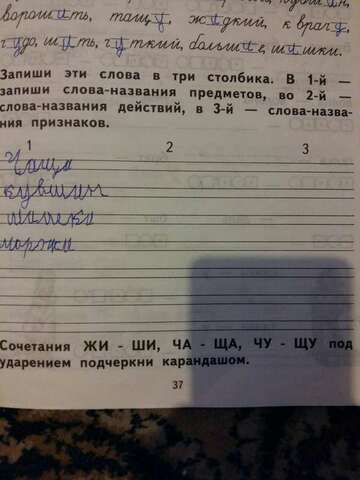 ворошить, тащу, жидкий, к врачу,
чудо, шить, чуткий, большие, шишки.
Запиши эти слова в три столбика. В 1-й —
запиши слова-названия предметов, во 2-й —
слова-названия действий, в 3-й — слова-назва-
ния признаков.
1 2 3
Чаща
кувшины
шишки
моржи
Сочетания ЖИ - ШИ, ЧА - ЩА, ЧУ - ЩУ под
ударением подчеркни карандашом.
37